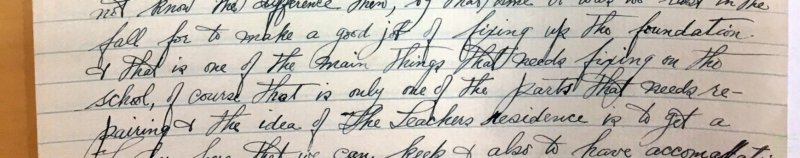 not know the difference then, by that time it was no rest in the
fall for to make a good job of fixing up the foundation.
& that is one of the main things that needs fixing on the
school, of course that is only one of the parts that needs re-
pairing & the idea of The Teachers residence is to get a
here that we can keep & also to have